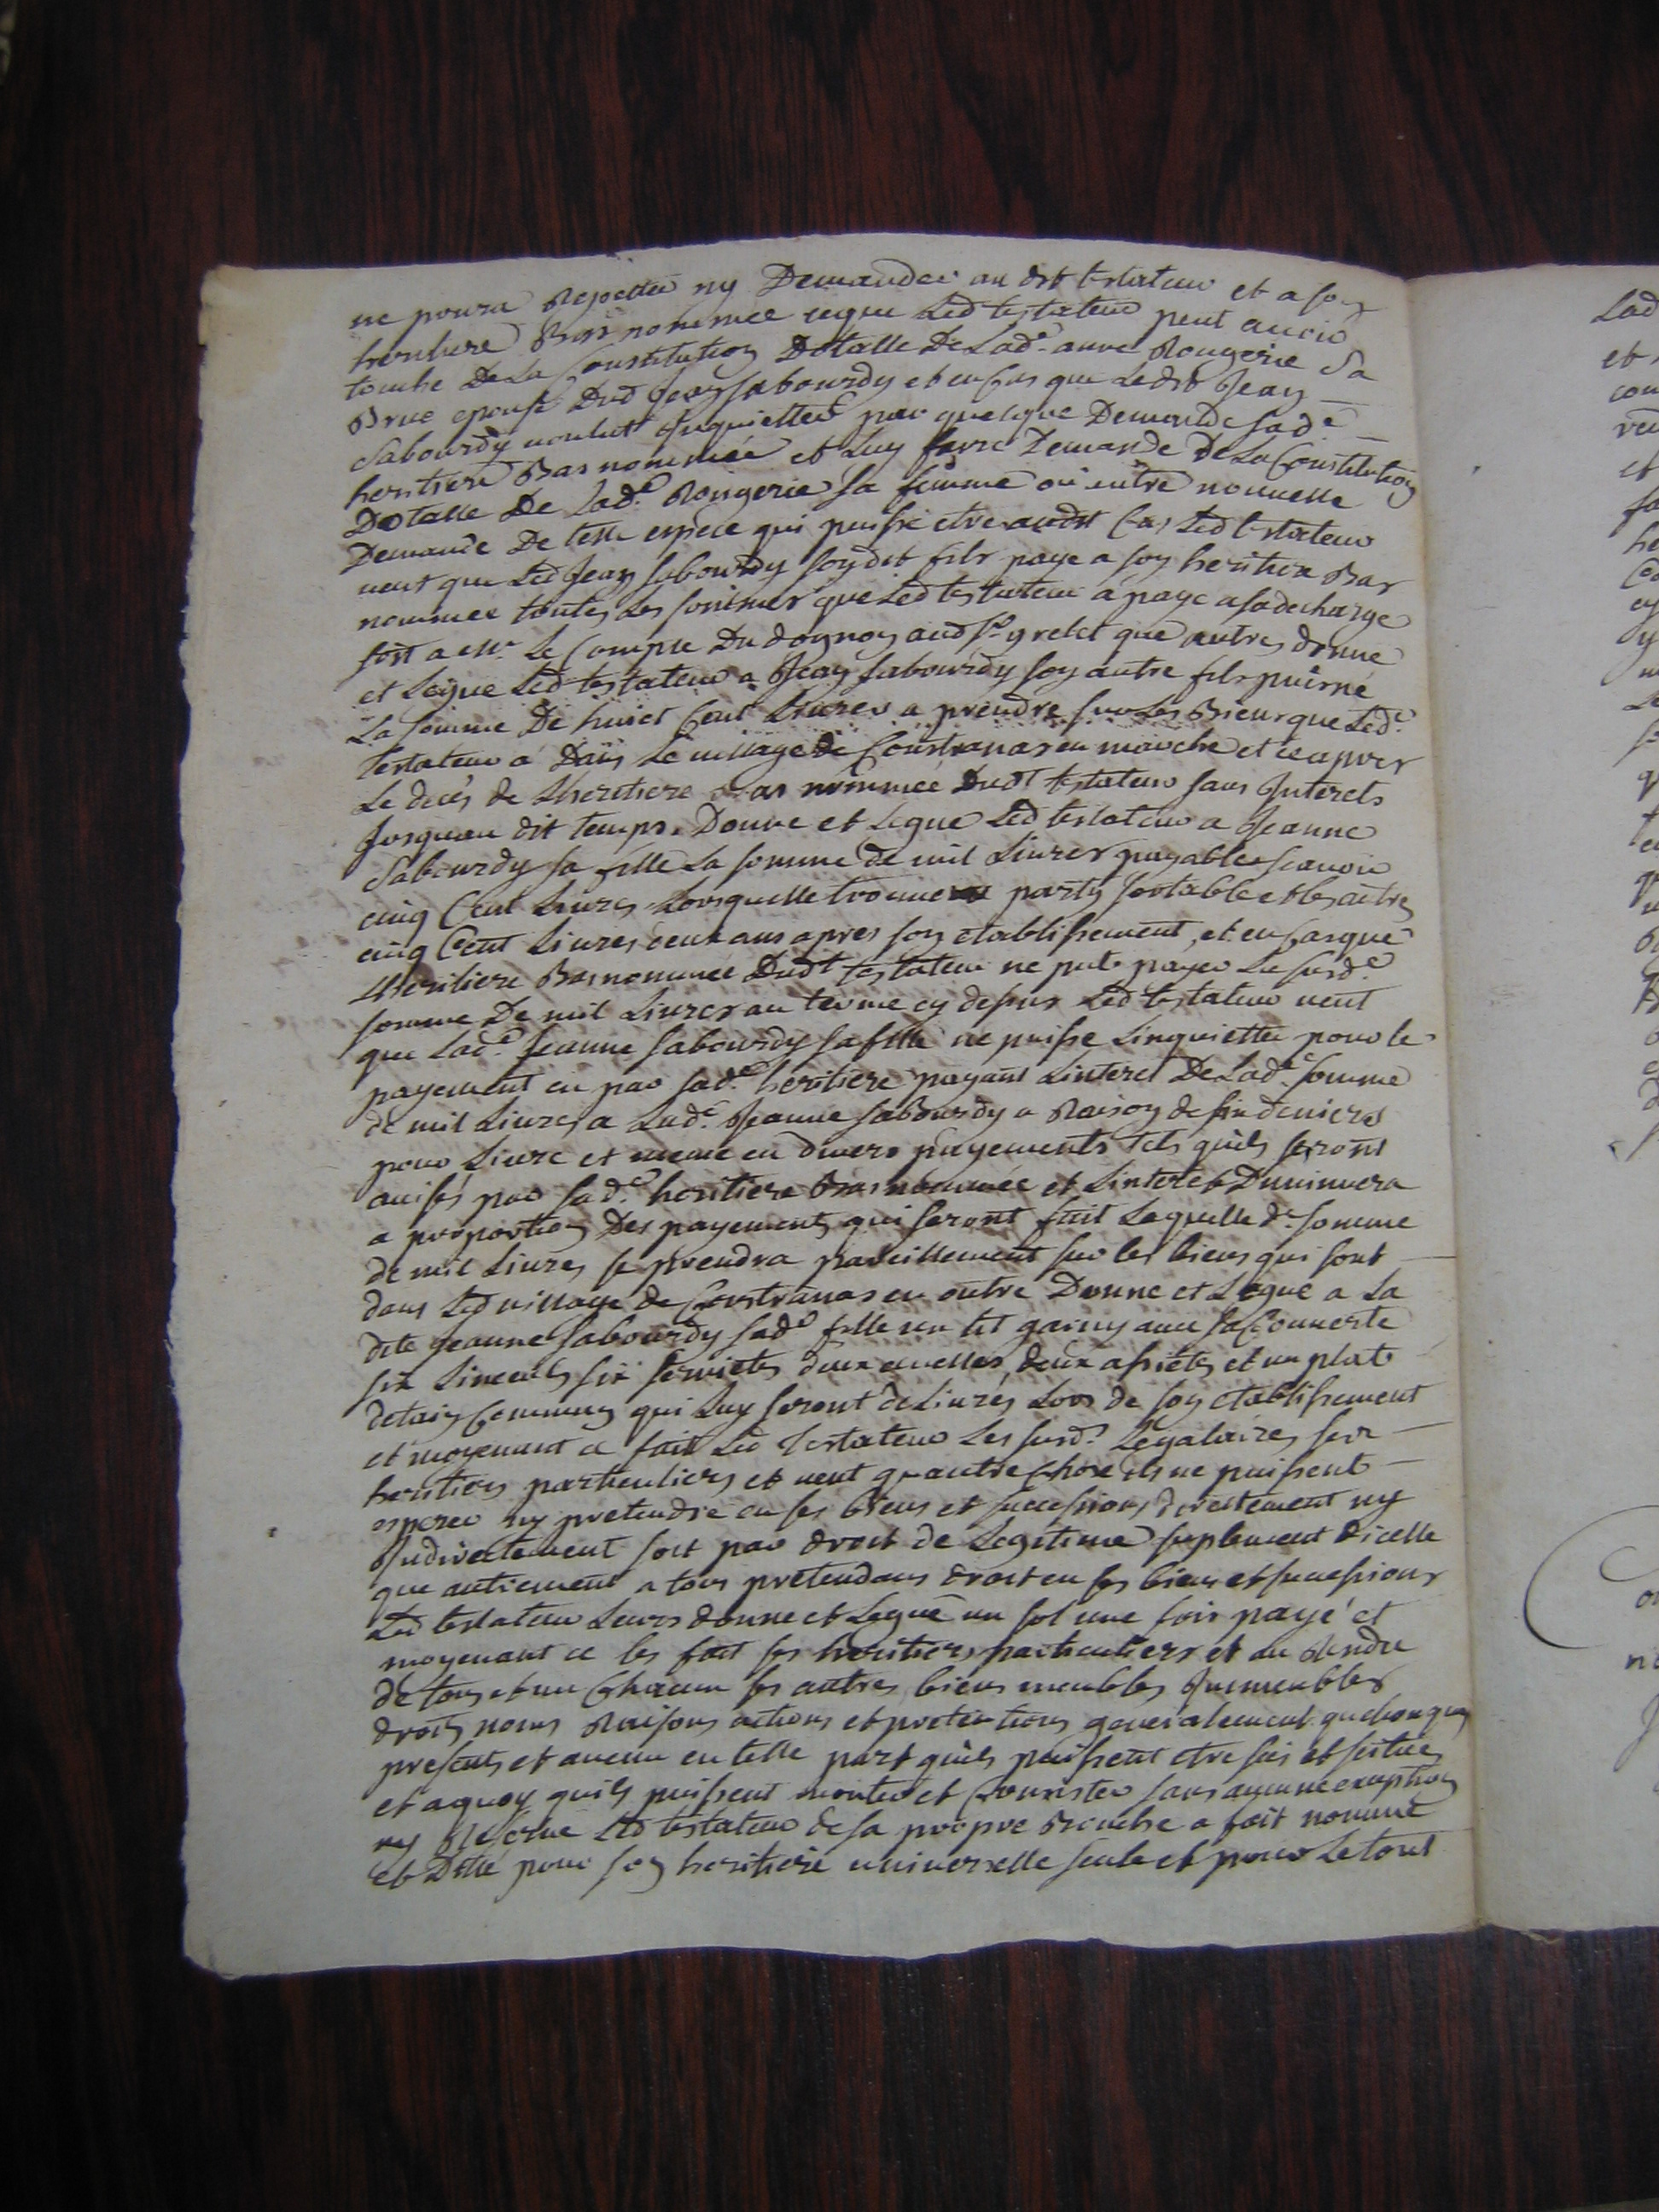 ne poura Repetter ny Demander au dit testateur et a son
heritiere Bas nommee ceque Led testateur peut auoir
touche De La Constitution Dotalle De Lad.e anne Rougerie Sa
Brue epouse Dud Jean Sabourdy et en Cas que Ledit Jean
Sabourdy voulut Inquietter par quelque Demande sad.e
heritiere Bas nommée et Luy faire Demande De La Constitution
Dotalle De Lad.e Rougerie sa femme ou autre nouuelle
Demande De telle espece qui puisse etre audit Cas Led testateur
veut que Led Jean Sabourdy son dit fils paye a son heritiere Bas
nommee toutes Les sommes que Led testateur a payé a sa decharge
soit a mr. Le Compte Du dognon aud sr. grelet que autres donne
et Legue Led testateur a Jean Sabourdy son autre fils puisné
La somme De huict Cent Liures a prendre sur Les Biens que Led.
testateur a Dans Le uillage de Coustranas en marche et ce apres
Le decés de Lheritiere Bas nommée Dudt testateur sans Interets
Jusquau dit temps. Donne et Legue Led testateur a Jeanne
Sabourdy sa fille La somme de mil Liures payables scauoir
cinq Cent Liures Lorsquelle trouuera party sortable et les autres
cinq Cent Liures deux ans apres son etablissement, et en Cas que
Lheritiere Bas nommée Dudt testateur ne put payer La susd.e
somme De mil Liures au terme cy dessus Led testateur ueut
que Lad.e Jeanne Sabourdy sa fille ne puisse Linquietter pour le
payement en par sad.e heritiere payant Linteret De Lad.e somme
de mil Liures a Lad.e Jeanne Sabourdy a Raison de six deniers
pour Liure et meme en diuers payements tels quils seront
auisés par sad.e heritiere Bas nommée et Linteret Diminuera
a proportion Des payements qui seront fait Laquelle d.e somme
de mil Liures se prendra pareillement sur les biens qui sont
dans Led uillage de Coustranas en outre Donne et Legue a La
dite Jeanne Sabourdy sad.e fille un lit garny auec sa Couuerte
six Linceuls six seruietes deux ecuelles deux assietes et un plat
detain Commun qui Luy seront deLiurés Lors de son etablissement
et moyenant ce fait Led testateur Les susd.s Legataires ses
heritiers particuliers et ueut quautre Chose ils ne puissent
esperer ny pretendre en ses biens et successions directement ny
Indirectement soit par droit de Legitime suplement dicelle
que autrement a tous pretendans droit en ses biens et successions
Led testateur Leurs donne et Legue un sol une fois payé et
moyenant ce les fait ses heritiers particuliers et au Rendu
de tous et un Chacun ses autres biens meubles Immeubles
droits noms Raisons actions et pretentions generalement quelconques
presents et auenir en telle part quils puissent etre sis et situés
et aquoy quils puissent monter et Consister sans aucune exception
ny Reserue Led testateur de sa propre Bouche a fait nommé
et Ditté pour son heritiere uniuerselle seule et pour Le tout